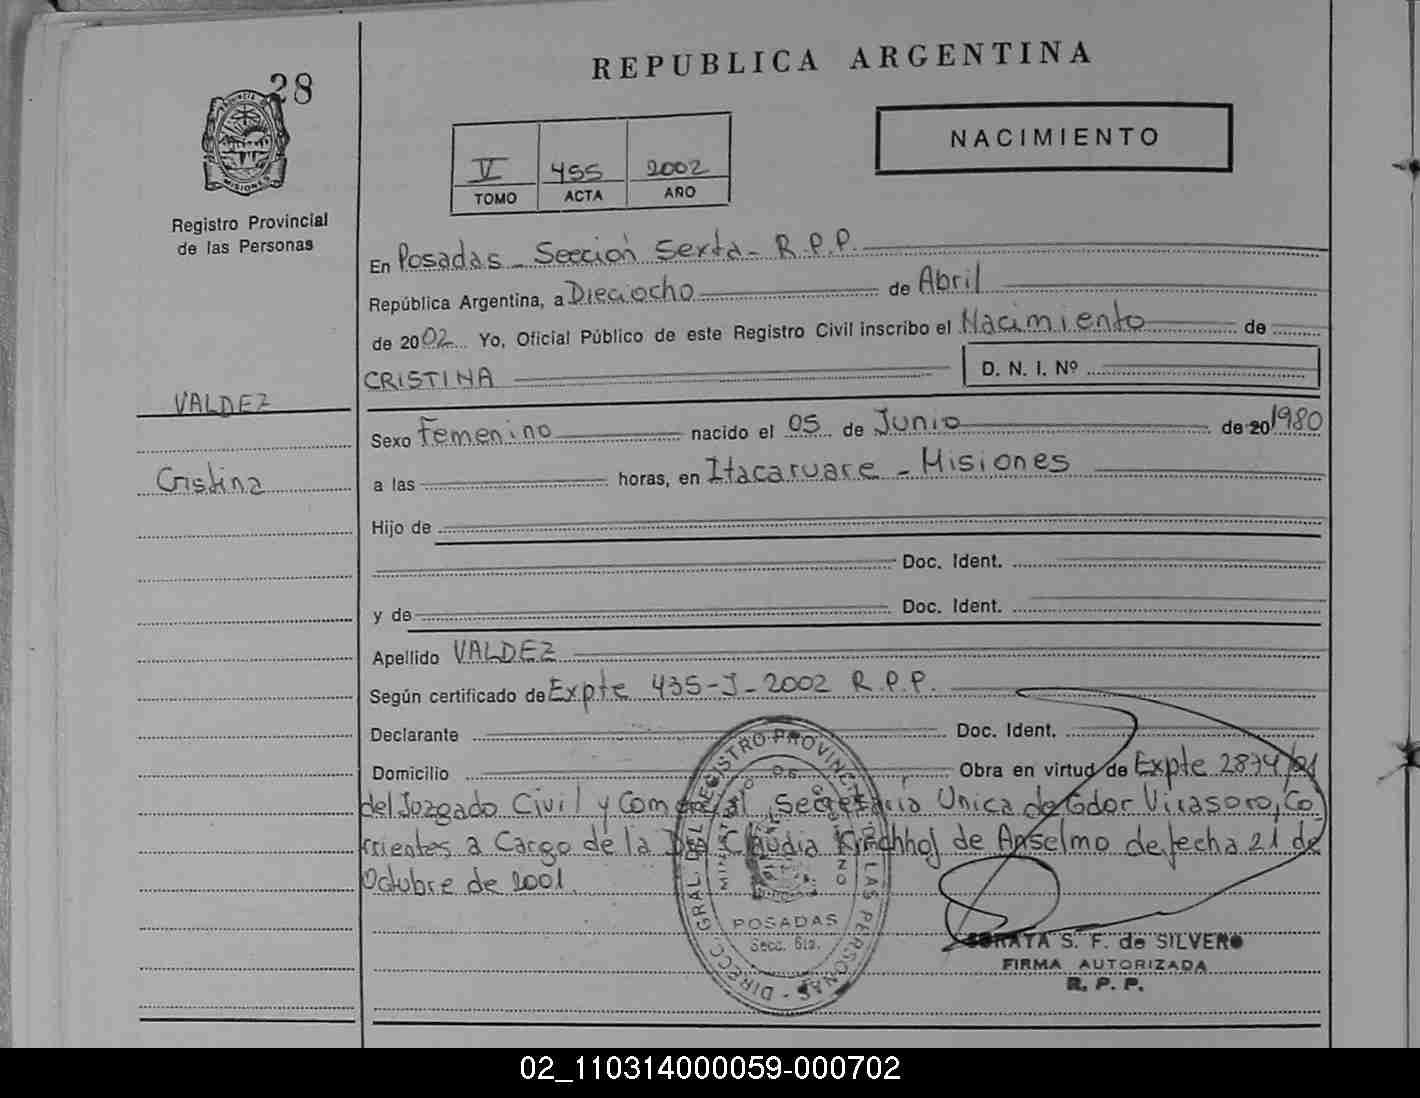 28
REPUBLICA ARGENTINA
NACIMIENTO
V 455 2002
TOMO ACTA AÑO
PROVINCIA DE MISIONES
Registro Provincial
de las Personas
En Posadas - Sección Sexta - R.P.P.
República Argentina, a Dieciocho de Abril
de 2002 Yo, Oficial Público de este Registro Civil inscribo el Nacimiento de
CRISTINA D. N. I. Nº
VALDEZ
Sexo Femenino nacido el 05 de Junio de 20 1980
Cristina
a las horas, en Itacaruare - Misiones
Hijo de
Doc. Ident.
y de Doc. Ident.
Apellido VALDEZ
Según certificado de Expte 435-J-2002 R.P.P.
Declarante Doc. Ident.
Domicilio Obra en virtud de Expte 2874/
del Juzgado Civil y Comercial, Secretaría Unica de Gdor Virasoro, Co
rrientes a Cargo de la Dra Claudia Kirchhof de Anselmo de fecha 21 de
Octubre de 2001.
DIRECC. GRAL. DEL REGISTRO PROVINCIAL DE LAS PERSONAS
MINISTERIO DE GOBIERNO
POSADAS
Secc. 6ta.
SORAYA S. F. de SILVERO
FIRMA AUTORIZADA
R. P. P.
02_110314000059-000702